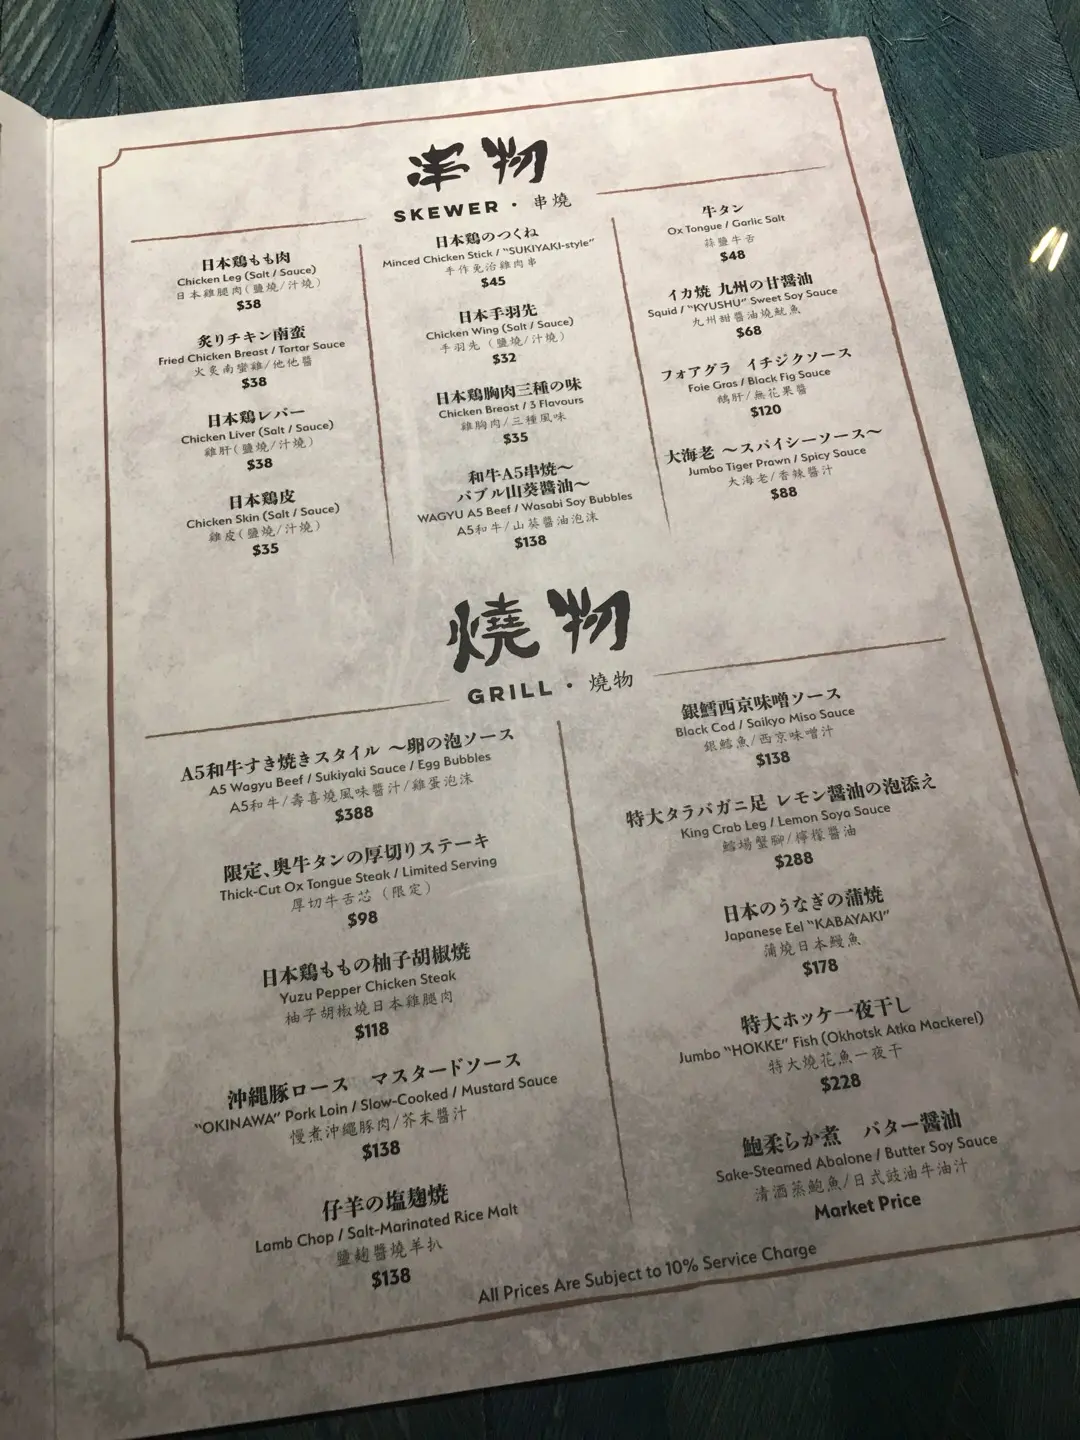 串物
SKEWER · 串燒
日本鶏もも肉
Chicken Leg (Salt / Sauce)
日本雞腿肉(鹽燒/汁燒)
$38
炙りチキン南蛮
Fried Chicken Breast / Tartar Sauce
火炙南蠻雞/他他醬
$38
日本鶏レバー
Chicken Liver (Salt / Sauce)
雞肝(鹽燒/汁燒)
$38
日本鶏皮
Chicken Skin (Salt / Sauce)
雞皮(鹽燒/汁燒)
$35
日本鶏のつくね
Minced Chicken Stick / "SUKIYAKI-style"
手作免治雞肉串
$45
日本手羽先
Chicken Wing (Salt / Sauce)
手羽先 (鹽燒/汁燒)
$32
日本鶏胸肉三種の味
Chicken Breast / 3 Flavours
雞胸肉/三種風味
$35
和牛A5串焼～
バブル山葵醬油～
WAGYU A5 Beef / Wasabi Soy Bubbles
A5和牛/山葵醬油泡沫
$138
牛タン
Ox Tongue / Garlic Salt
蒜鹽牛舌
$48
イカ焼 九州の甘醤油
Squid / "KYUSHU" Sweet Soy Sauce
九州甜醬油燒魷魚
$68
フォアグラ イチジクソース
Foie Gras / Black Fig Sauce
鵝肝/無花果醬
$120
大海老 ～スパイシーソース～
Jumbo Tiger Prawn / Spicy Sauce
大海老/香辣醬汁
$88
燒物
GRILL · 燒物
A5和牛すき焼きスタイル ～卵の泡ソース
A5 Wagyu Beef / Sukiyaki Sauce / Egg Bubbles
A5和牛/壽喜燒風味醬汁/雞蛋泡沫
$388
限定、奥牛タンの厚切りステーキ
Thick-Cut Ox Tongue Steak / Limited Serving
厚切牛舌芯 (限定)
$98
日本鶏ももの柚子胡椒焼
Yuzu Pepper Chicken Steak
柚子胡椒燒日本雞腿肉
$118
沖縄豚ロース マスタードソース
"OKINAWA" Pork Loin / Slow-Cooked / Mustard Sauce
慢煮沖繩豚肉/芥末醬汁
$138
仔羊の塩麹焼
Lamb Chop / Salt-Marinated Rice Malt
鹽麹醬燒羊扒
$138
銀鱈西京味噌ソース
Black Cod / Saikyo Miso Sauce
銀鱈魚/西京味噌汁
$138
特大タラバガニ足 レモン醤油の泡添え
King Crab Leg / Lemon Soya Sauce
鱈場蟹腳/檸檬醬油
$288
日本のうなぎの蒲焼
Japanese Eel "KABAYAKI"
蒲燒日本鰻魚
$178
特大ホッケ一夜干し
Jumbo "HOKKE" Fish (Okhotsk Atka Mackerel)
特大燒花魚一夜干
$228
鮑柔らか煮 バター醤油
Sake-Steamed Abalone / Butter Soy Sauce
清酒蒸鮑魚/日式豉油牛油汁
Market Price
All Prices Are Subject to 10% Service Charge